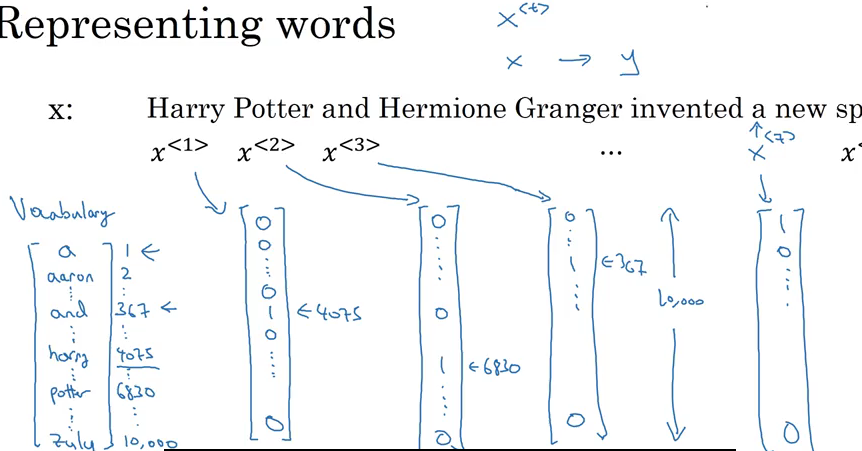 Representing words
x<t>
x → y
x: Harry Potter and Hermione Granger invented a new sp
x<1> x<2> x<3> ... x<7> x<
Vocabulary
a 1 ←
aaron 2
and 367 ←
harry 4075
potter 6830
zulu 10,000
0
0
0
1 ← 4075
0
0
0
0
1 ← 6830
0
0
1 ← 367
0
10,000
1
0
0